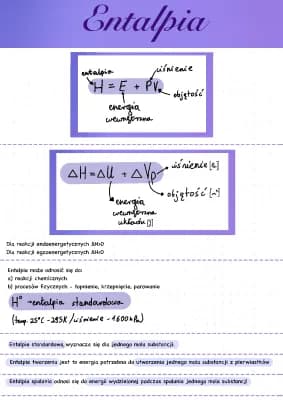 Entalpia
entalpia
ciśnienie
H = E + PV
objętość
energia
wewnętrzna
ΔH = ΔU + ΔVp
ciśnienie
objętość
energia
wewnętrzna
układu [J]
Dla reakcji endoenergetycznych ΔH>0
Dla reakcji egzoenergetycznych ΔH<0
Entalpia może odnosić się do:
a) reakcji chemicznych
b) procesów fizycznych - topnienie, krzepnięcie, parowanie
H° → entalpia standardowa
(temp. 25°C - 295K / ciśnienie - 1600hPa)
Entalpie standardową wyznacza się dla jednego mola substancji.
Entalpie tworzenia jest to energia potrzebna do utworzenia jednego mola substancji z pierwiastków
Entalpie spalania odnosi się do energii wydzielonej podczas spalania jednego mola substancji